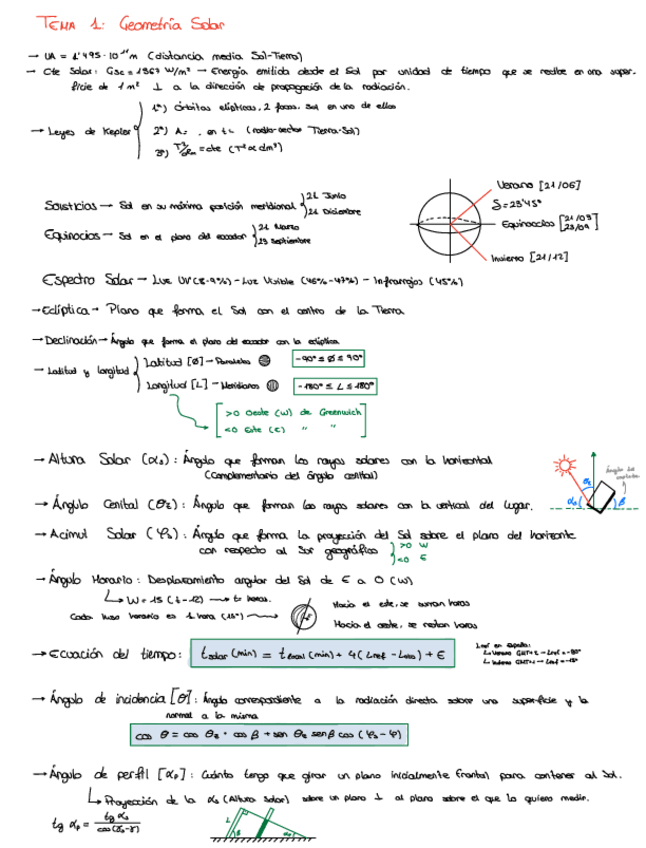 TEMA 1: Geometría Solar
→ UA = 1'495 · 10¹¹ m (distancia media Sol-Tierra)
→ Cte Solar: Gsc = 1367 W/m² → Energía emitida desde el Sol por unidad de tiempo que se recibe en una super-
ficie de 1 m² ⊥ a la dirección de propagación de la radiación.
→ Leyes de Kepler
1º) Órbitas elípticas, 2 focos, Sol en uno de ellos
2º) A= . en t= (radio-vector Tierra-Sol)
= cte
Solsticios → Sol en su máxima posición meridional
21 Junio
21 Diciembre
Equinocios → Sol en el plano del ecuador
21 Marzo
23 Septiembre
Verano [21/06]
δ = 23'45°
Equinoccios [21/03
23/09]
Invierno [21/12]
Espectro Solar → Luz UV (8-9%) - Luz Visible (46%-47%) - Infrarrojos (45%)
→ Eclíptica → Plano que forma el Sol con el centro de la Tierra
→ Declinación → Ángulo que forma el plano del ecuador con la eclíptica
→ Latitud y longitud
Latitud [Ø] → Paralelos
-90° ≤ Ø ≤ 90°
Longitud [L] → Meridianos
-180° ≤ L ≤ 180°
>0 Oeste (W) de Greenwich
<0 Este (E) " "
→ Altura Solar (αs): Ángulo que forman los rayos solares con la horizontal
(Complementario del ángulo cenital)
→ Ángulo Cenital (θz): Ángulo que forman los rayos solares con la vertical del lugar.
θz
αs
β
Ángulo de
→ Acimut Solar (φs): Ángulo que forma la proyección del Sol sobre el plano del horizonte
con respecto al Sur geográfico
>0 W
<0 E
→ Ángulo Horario: Desplazamiento angular del Sol de E a O (W)
↳ W = 15 (t-12) → t= horas.
Cada huso horario es 1 hora (15°) →
Hacia el este, se suman horas
Hacia el oeste, se restan horas
→ Ecuación del tiempo:
tsolar (min) = tlocal (min) + 4(Lref - Lloc) + E
Lref en España:
↳ Verano GMT+2 → Lref = -30°
↳ Invierno GMT+1 → Lref = -15°
→ Ángulo de incidencia [θ]: Ángulo correspondiente a la radiación directa sobre una superficie y la
normal a la misma
cos θ = cos θz · cos β + sen θz sen β cos (φs - φ)
→ Ángulo de perfil [αp]: Cuánto tengo que girar un plano inicialmente frontal para contener al Sol.
↳ Proyección de la αs (Altura Solar) sobre un plano ⊥ al plano sobre el que lo quiero medir.
tg αp =
tg αs
L
β